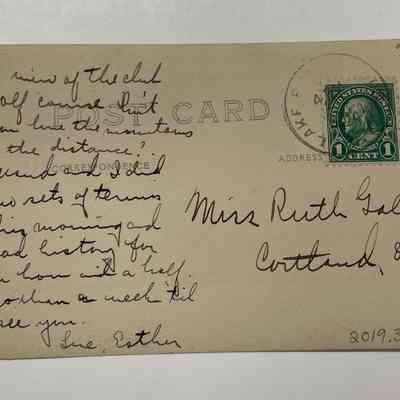 view of the club
golf course. Don't
you love the mountains
the distance?
and I did
two sets of tennis
this morning and
read history for
an hour and a half.
than a week 'til
see you.
Love, Esther
POST CARD
CORRESPONDENCE
ADDRESS
LAKE
UNITED STATES POSTAGE
1 CENT 1
Miss Ruth Gal
Cortland,
2019.3